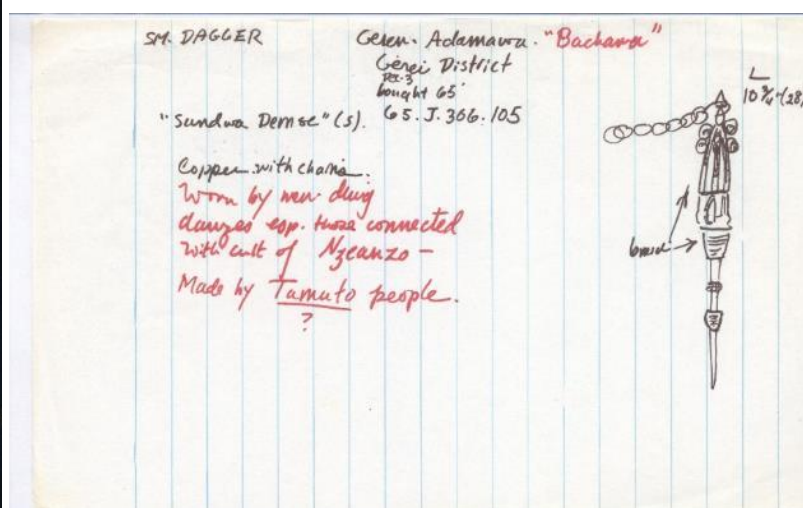 SM. DAGGER
Geren. Adamawa. "Bachama"
Gerei District
bought 65'
65. J. 366. 105
"Sundwa Demse" (s).
L
10 3/4" (28)
Copper with chains.
Worn by men duig
danzes esp. those connected
with cult of Nzeanzo –
Made by Tamuto people.
?